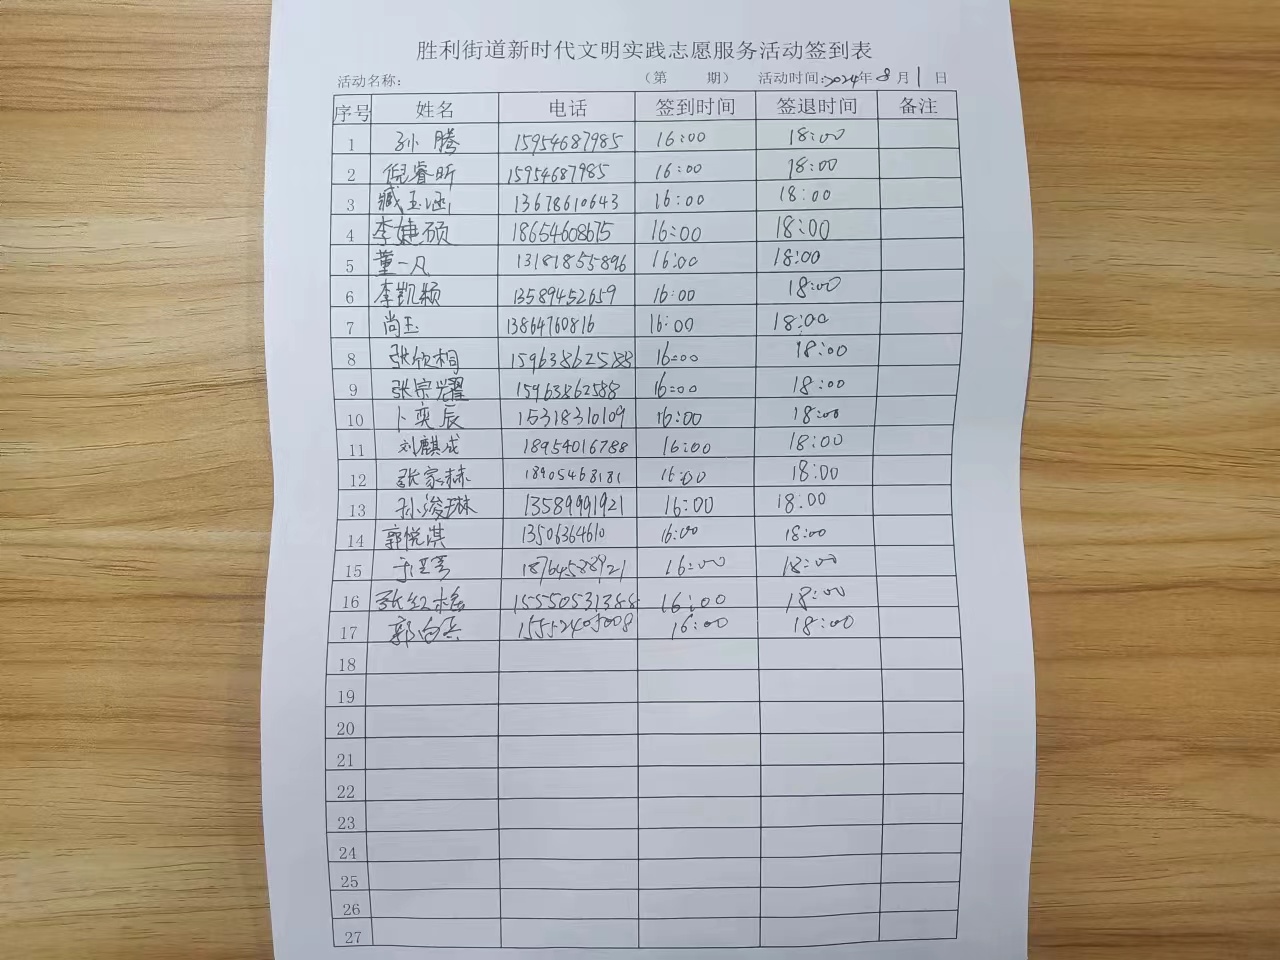 胜利街道新时代文明实践志愿服务活动签到表
活动名称: （第 期） 活动时间:2024年8月1日
序号 姓名 电话 签到时间 签退时间 备注
1 孙腾 15954687985 16:00 18:00
2 倪睿昕 15954687985 16:00 18:00
3 臧玉涵 13678610643 16:00 18:00
4 李婕硕 18654608675 16:00 18:00
5 董一凡 13181855896 16:00 18:00
6 李凯颖 13589452659 16:00 18:00
7 尚玉 13864760816 16:00 18:00
8 张欣桐 15963862588 16:00 18:00
9 张宗耀 15963862588 16:00 18:00
10 卜奕辰 15318310109 16:00 18:00
11 刘麒成 18954016788 16:00 18:00
12 张家赫 18905468181 16:00 18:00
13 孙浚琳 13589991921 16:00 18:00
14 郭悦淇 13506364610 16:00 18:00
15 18764588921 16:00 18:00
16 15550531388 16:00 18:00
17 16:00 18:00
18
19
20
21
22
23
24
25
26
27